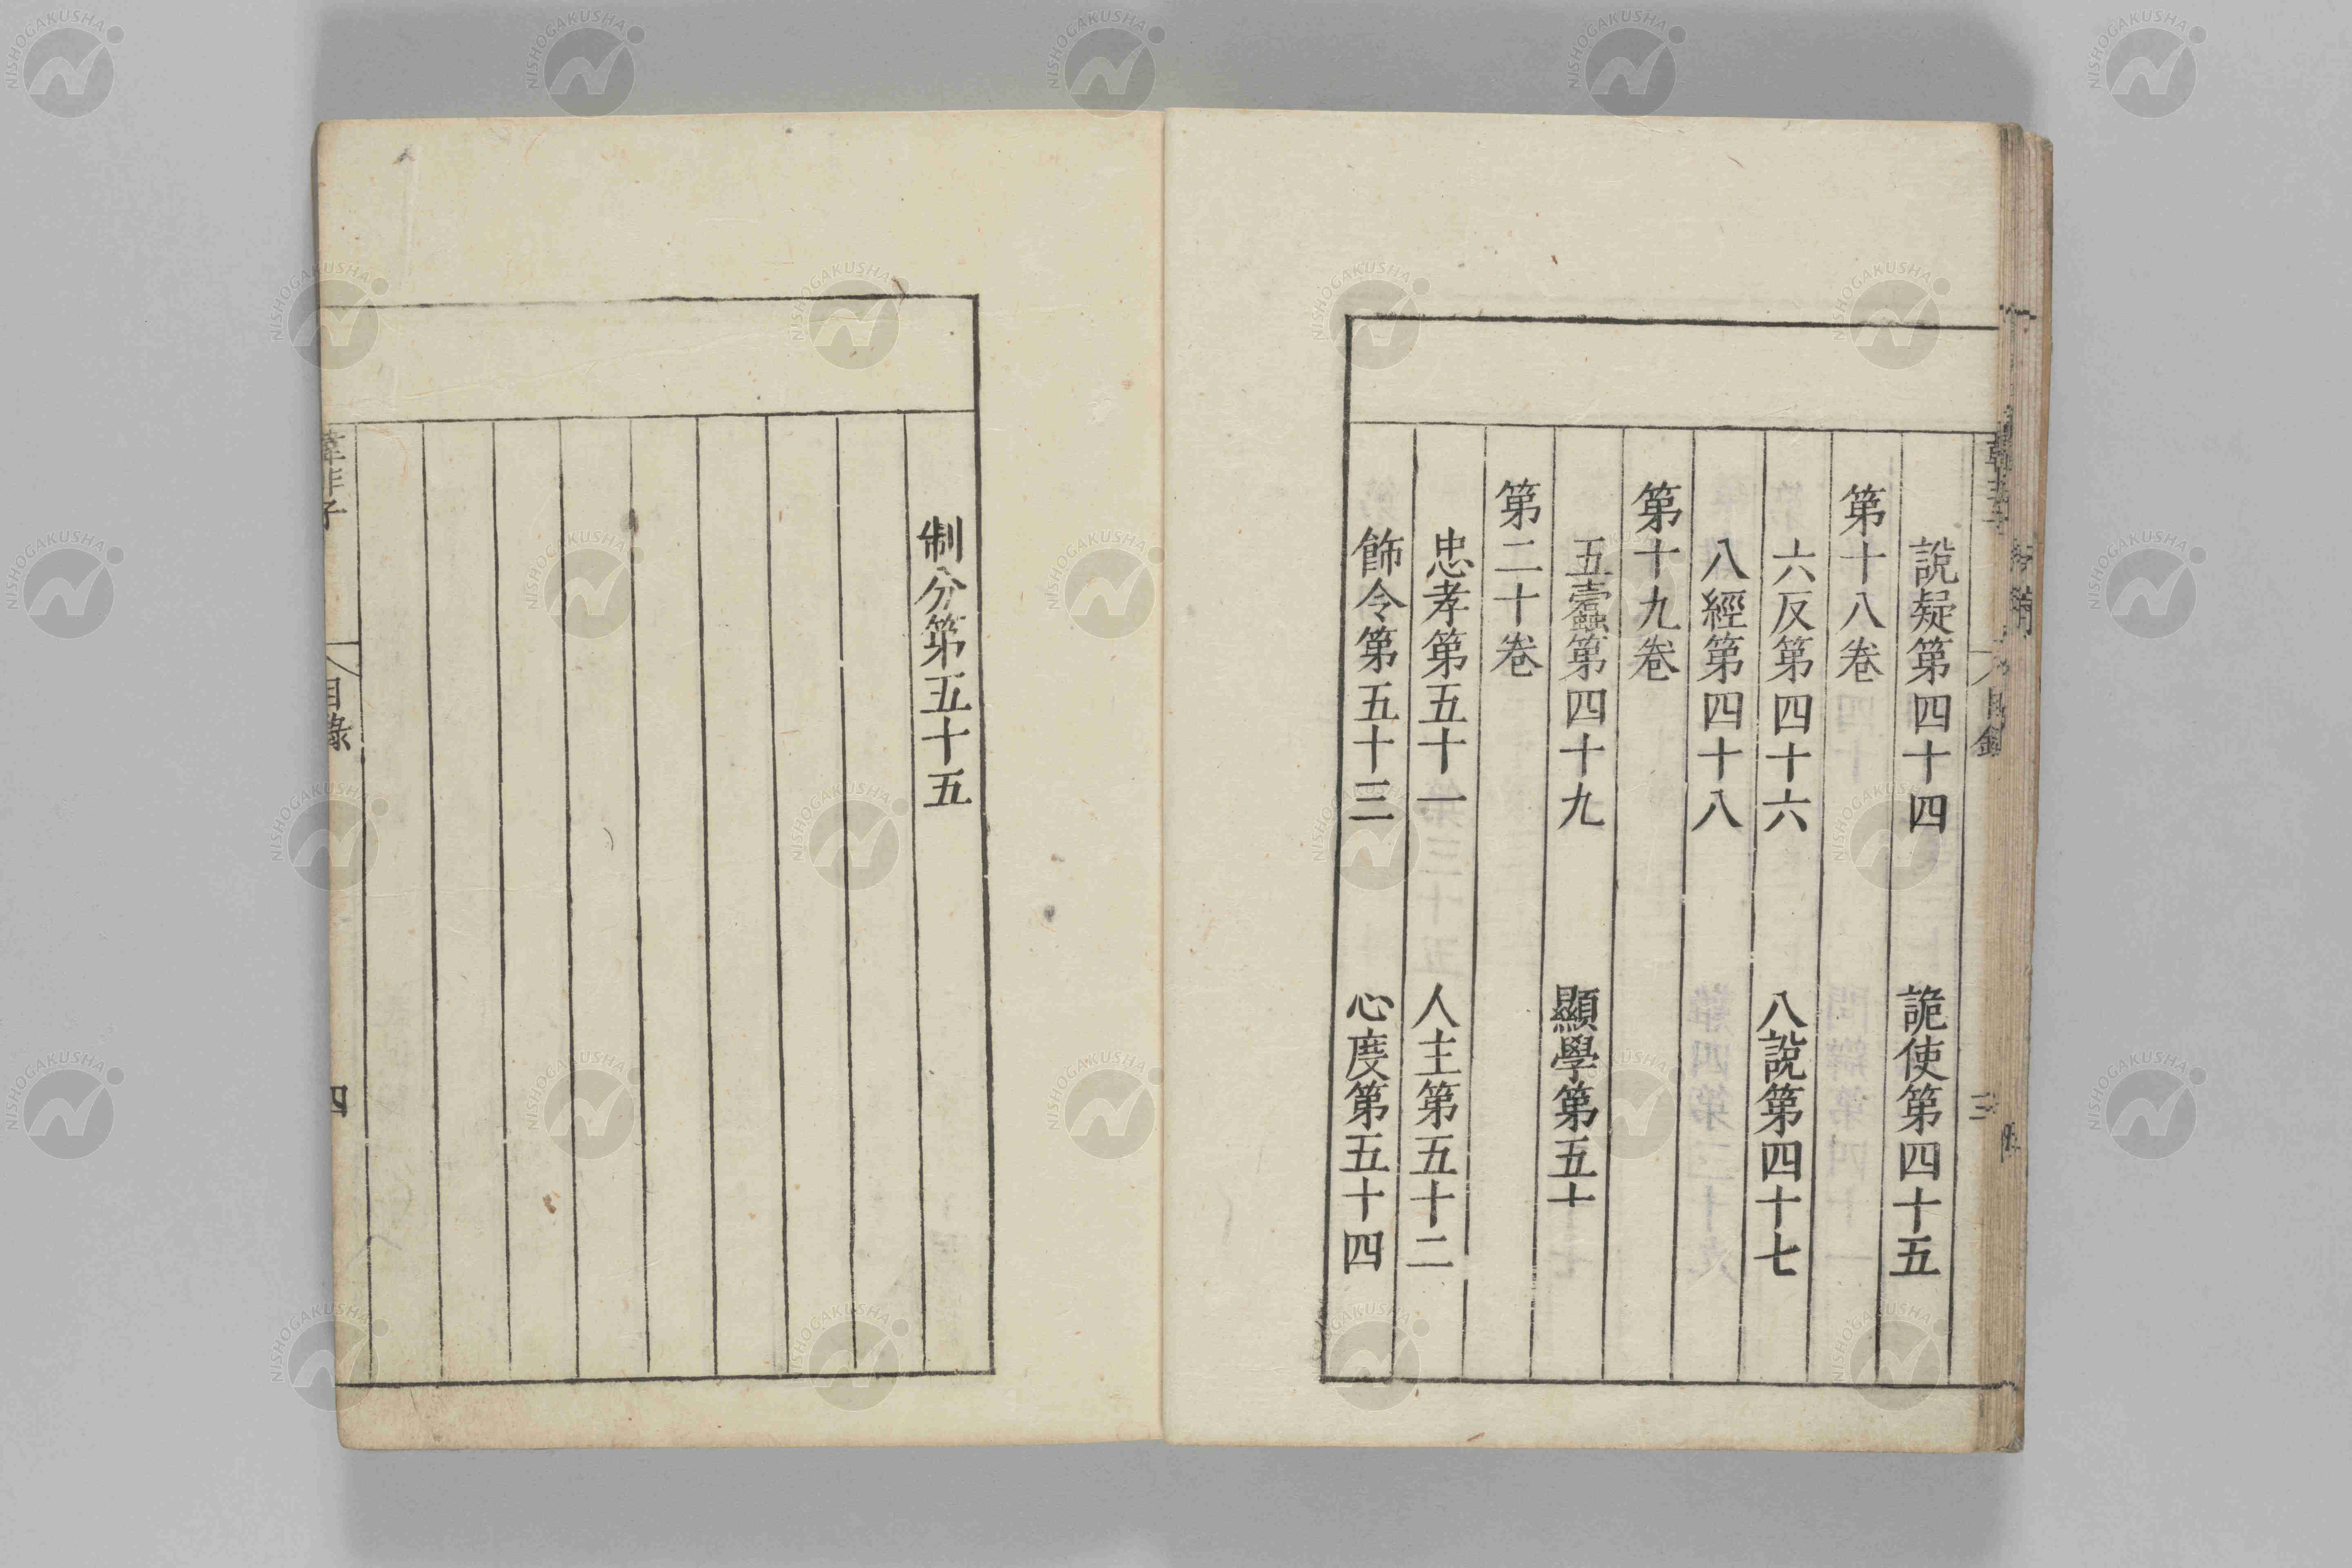 說疑第四十四　詭使第四十五
第十八卷
六反第四十六　八說第四十七
八經第四十八
第十九卷
五蠹第四十九　顯學第五十
第二十卷
忠孝第五十一　人主第五十二
飭令第五十三　心度第五十四
制分第五十五
韓非子　目錄　四
NISHOGAKUSHA